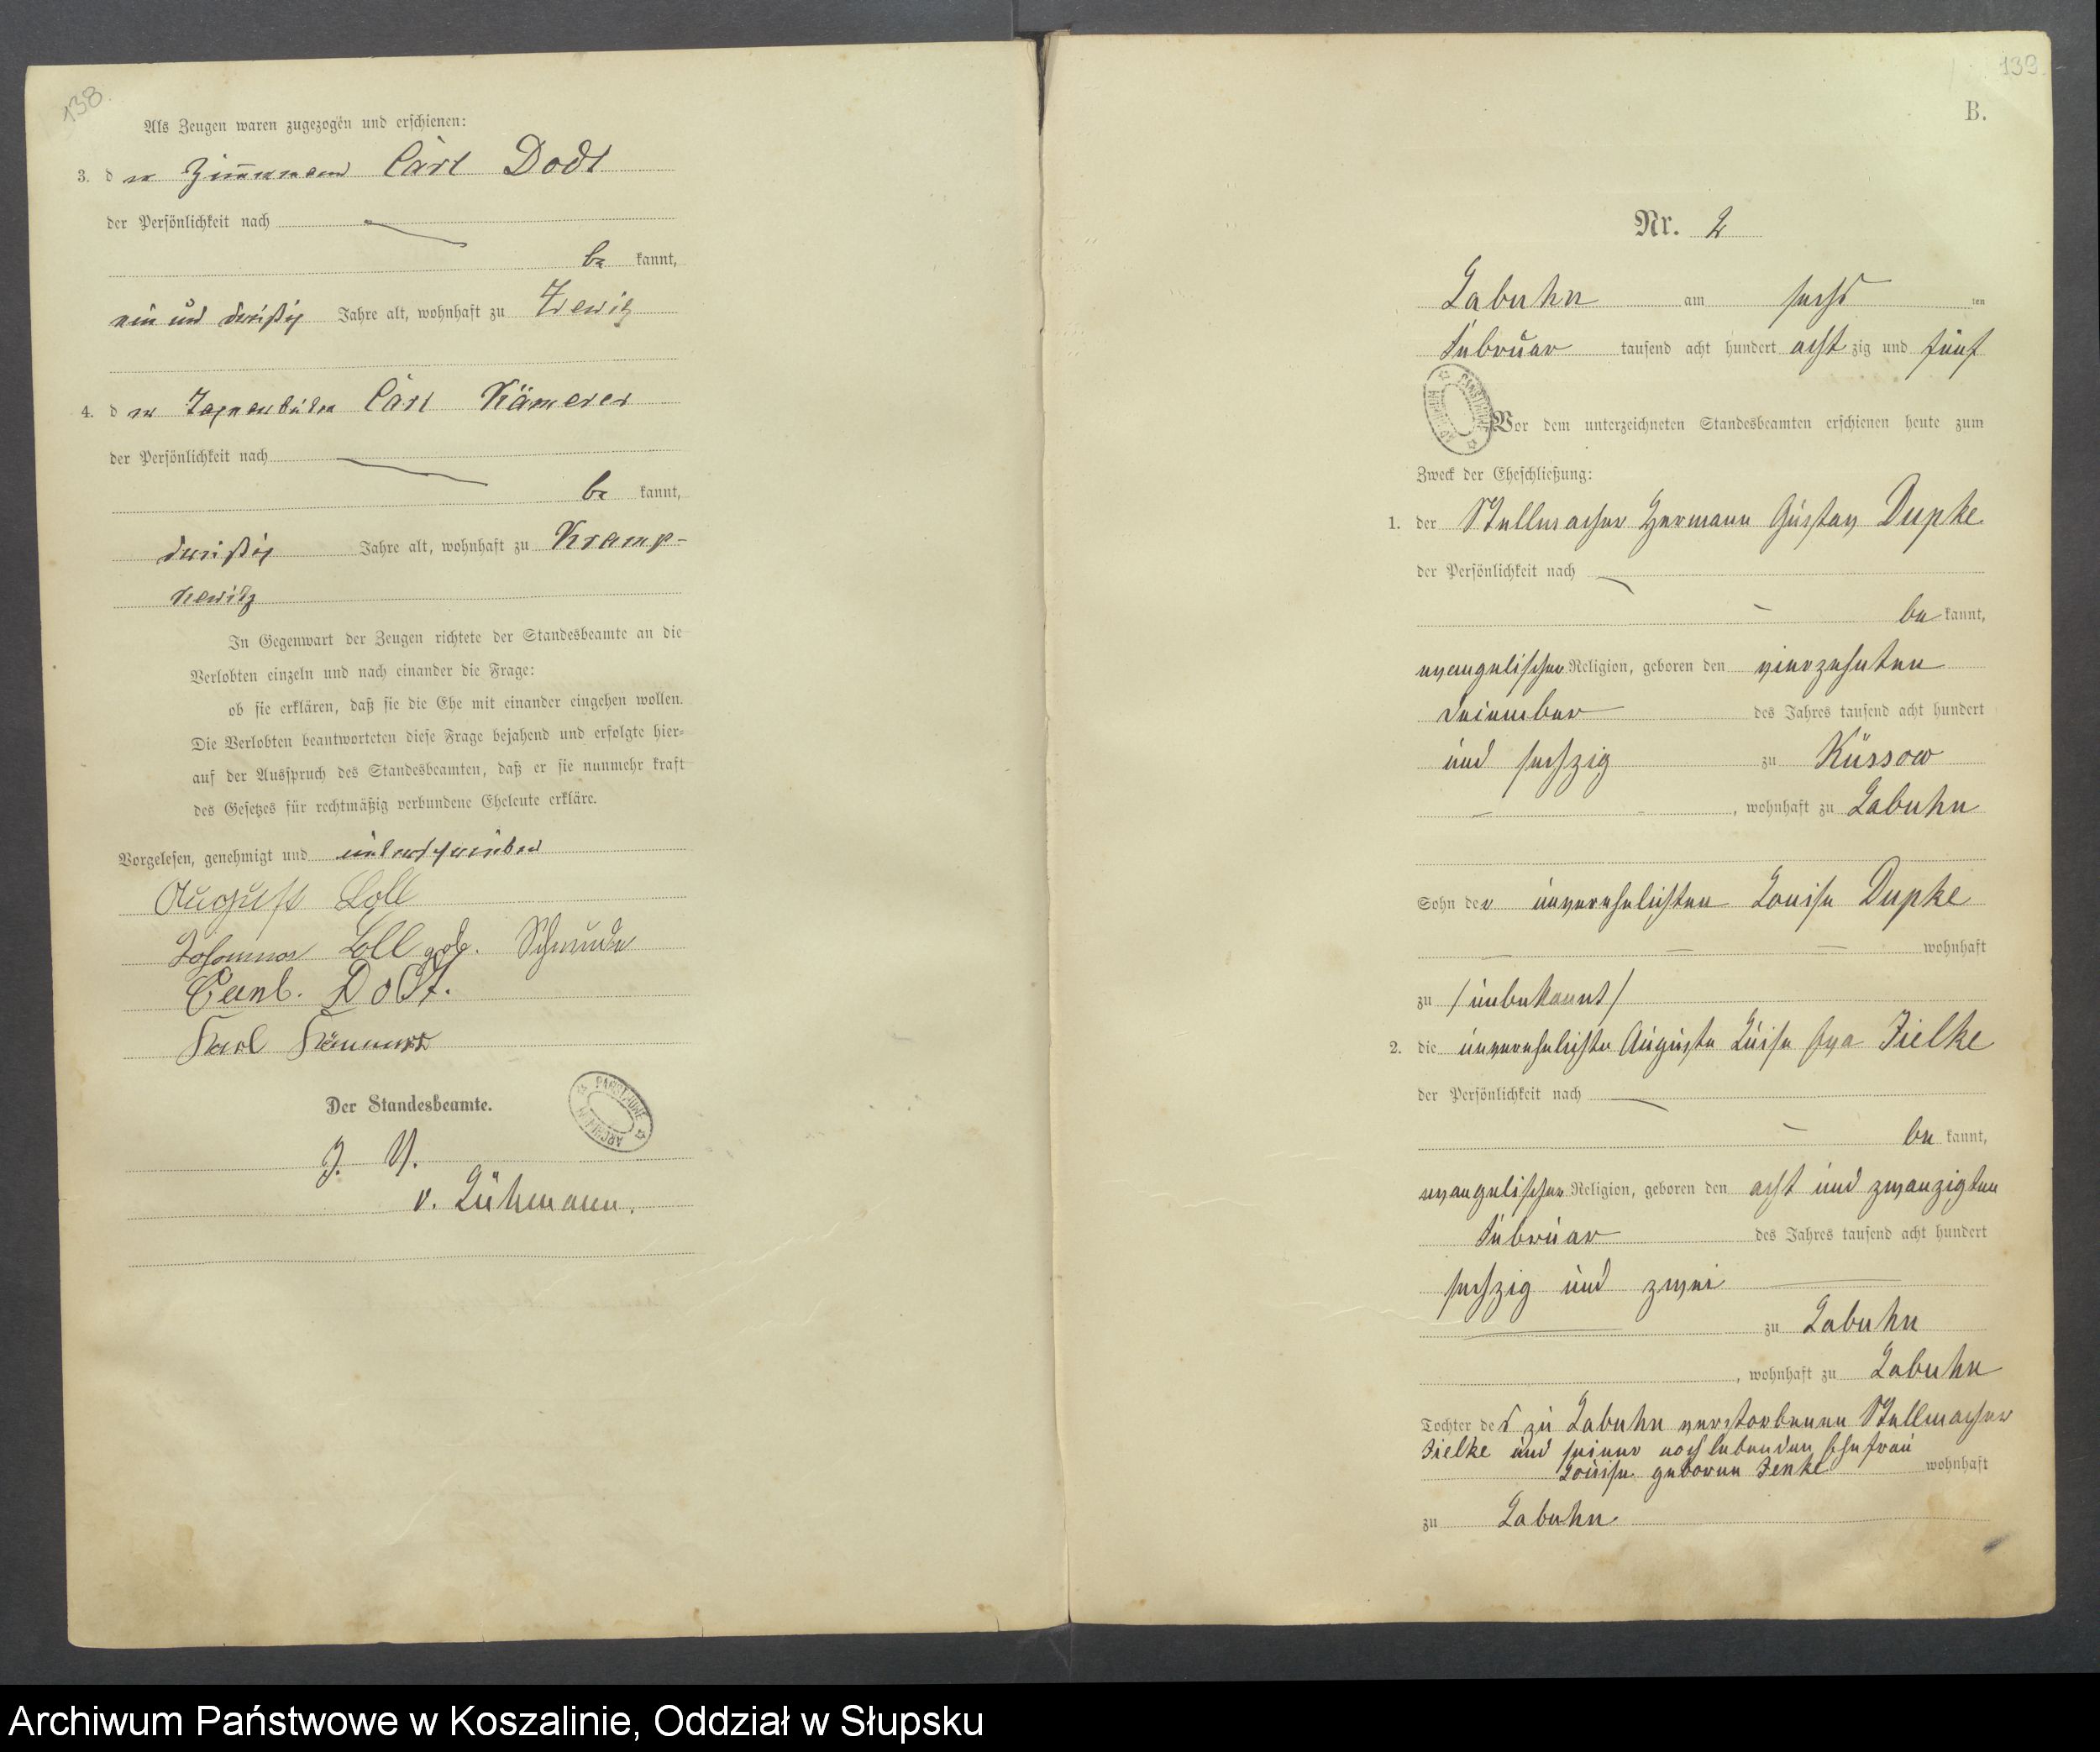 138.
Als Zeugen waren zugezogen und erschienen:
3. d er Zimmermann Carl Dodt
der Persönlichkeit nach
be kannt,
ein und dreißig Jahre alt, wohnhaft zu Zewitz
4. d er Carl Kämerer
der Persönlichkeit nach
be kannt,
dreißig Jahre alt, wohnhaft zu Kramp-
kewitz
In Gegenwart der Zeugen richtete der Standesbeamte an die
Verlobten einzeln und nach einander die Frage:
ob sie erklären, daß sie die Ehe mit einander eingehen wollen.
Die Verlobten beantworteten diese Frage bejahend und erfolgte hier-
auf der Ausspruch des Standesbeamten, daß er sie nunmehr kraft
des Gesetzes für rechtmäßig verbundene Eheleute erkläre.
Vorgelesen, genehmigt und unterschrieben
August Loll
Johanna Loll geb. Schmude
Carl. Dodt.
Karl
Der Standesbeamte.
J. V.
v. Lühmann.
139.
B.
Nr. 2
Labuhn am sechs ten
Februar tausend acht hundert acht zig und fünf
Vor dem unterzeichneten Standesbeamten erschienen heute zum
Zweck der Eheschließung:
1. der Stellmacher Hermann Gustav Dupke
der Persönlichkeit nach
be kannt,
evangelischer Religion, geboren den vierzehnten
Dezember des Jahres tausend acht hundert
und sechzig zu Küssow
, wohnhaft zu Labuhn
Sohn der unverehelichten Louise Dupke
wohnhaft
zu /unbekannt/
2. die unverehelichte Auguste Luise Eva Zielke
der Persönlichkeit nach
be kannt,
evangelischer Religion, geboren den acht und zwanzigten
Februar des Jahres tausend acht hundert
sechzig und zwei
zu Labuhn
, wohnhaft zu Labuhn
Tochter des zu Labuhn verstorbenen Stellmacher
Zielke und seiner noch lebenden Ehefrau
Louise geborne Zenke wohnhaft
zu Labuhn.
ARCHIWUM PAŃSTWOWE
Archiwum Państwowe w Koszalinie, Oddział w Słupsku